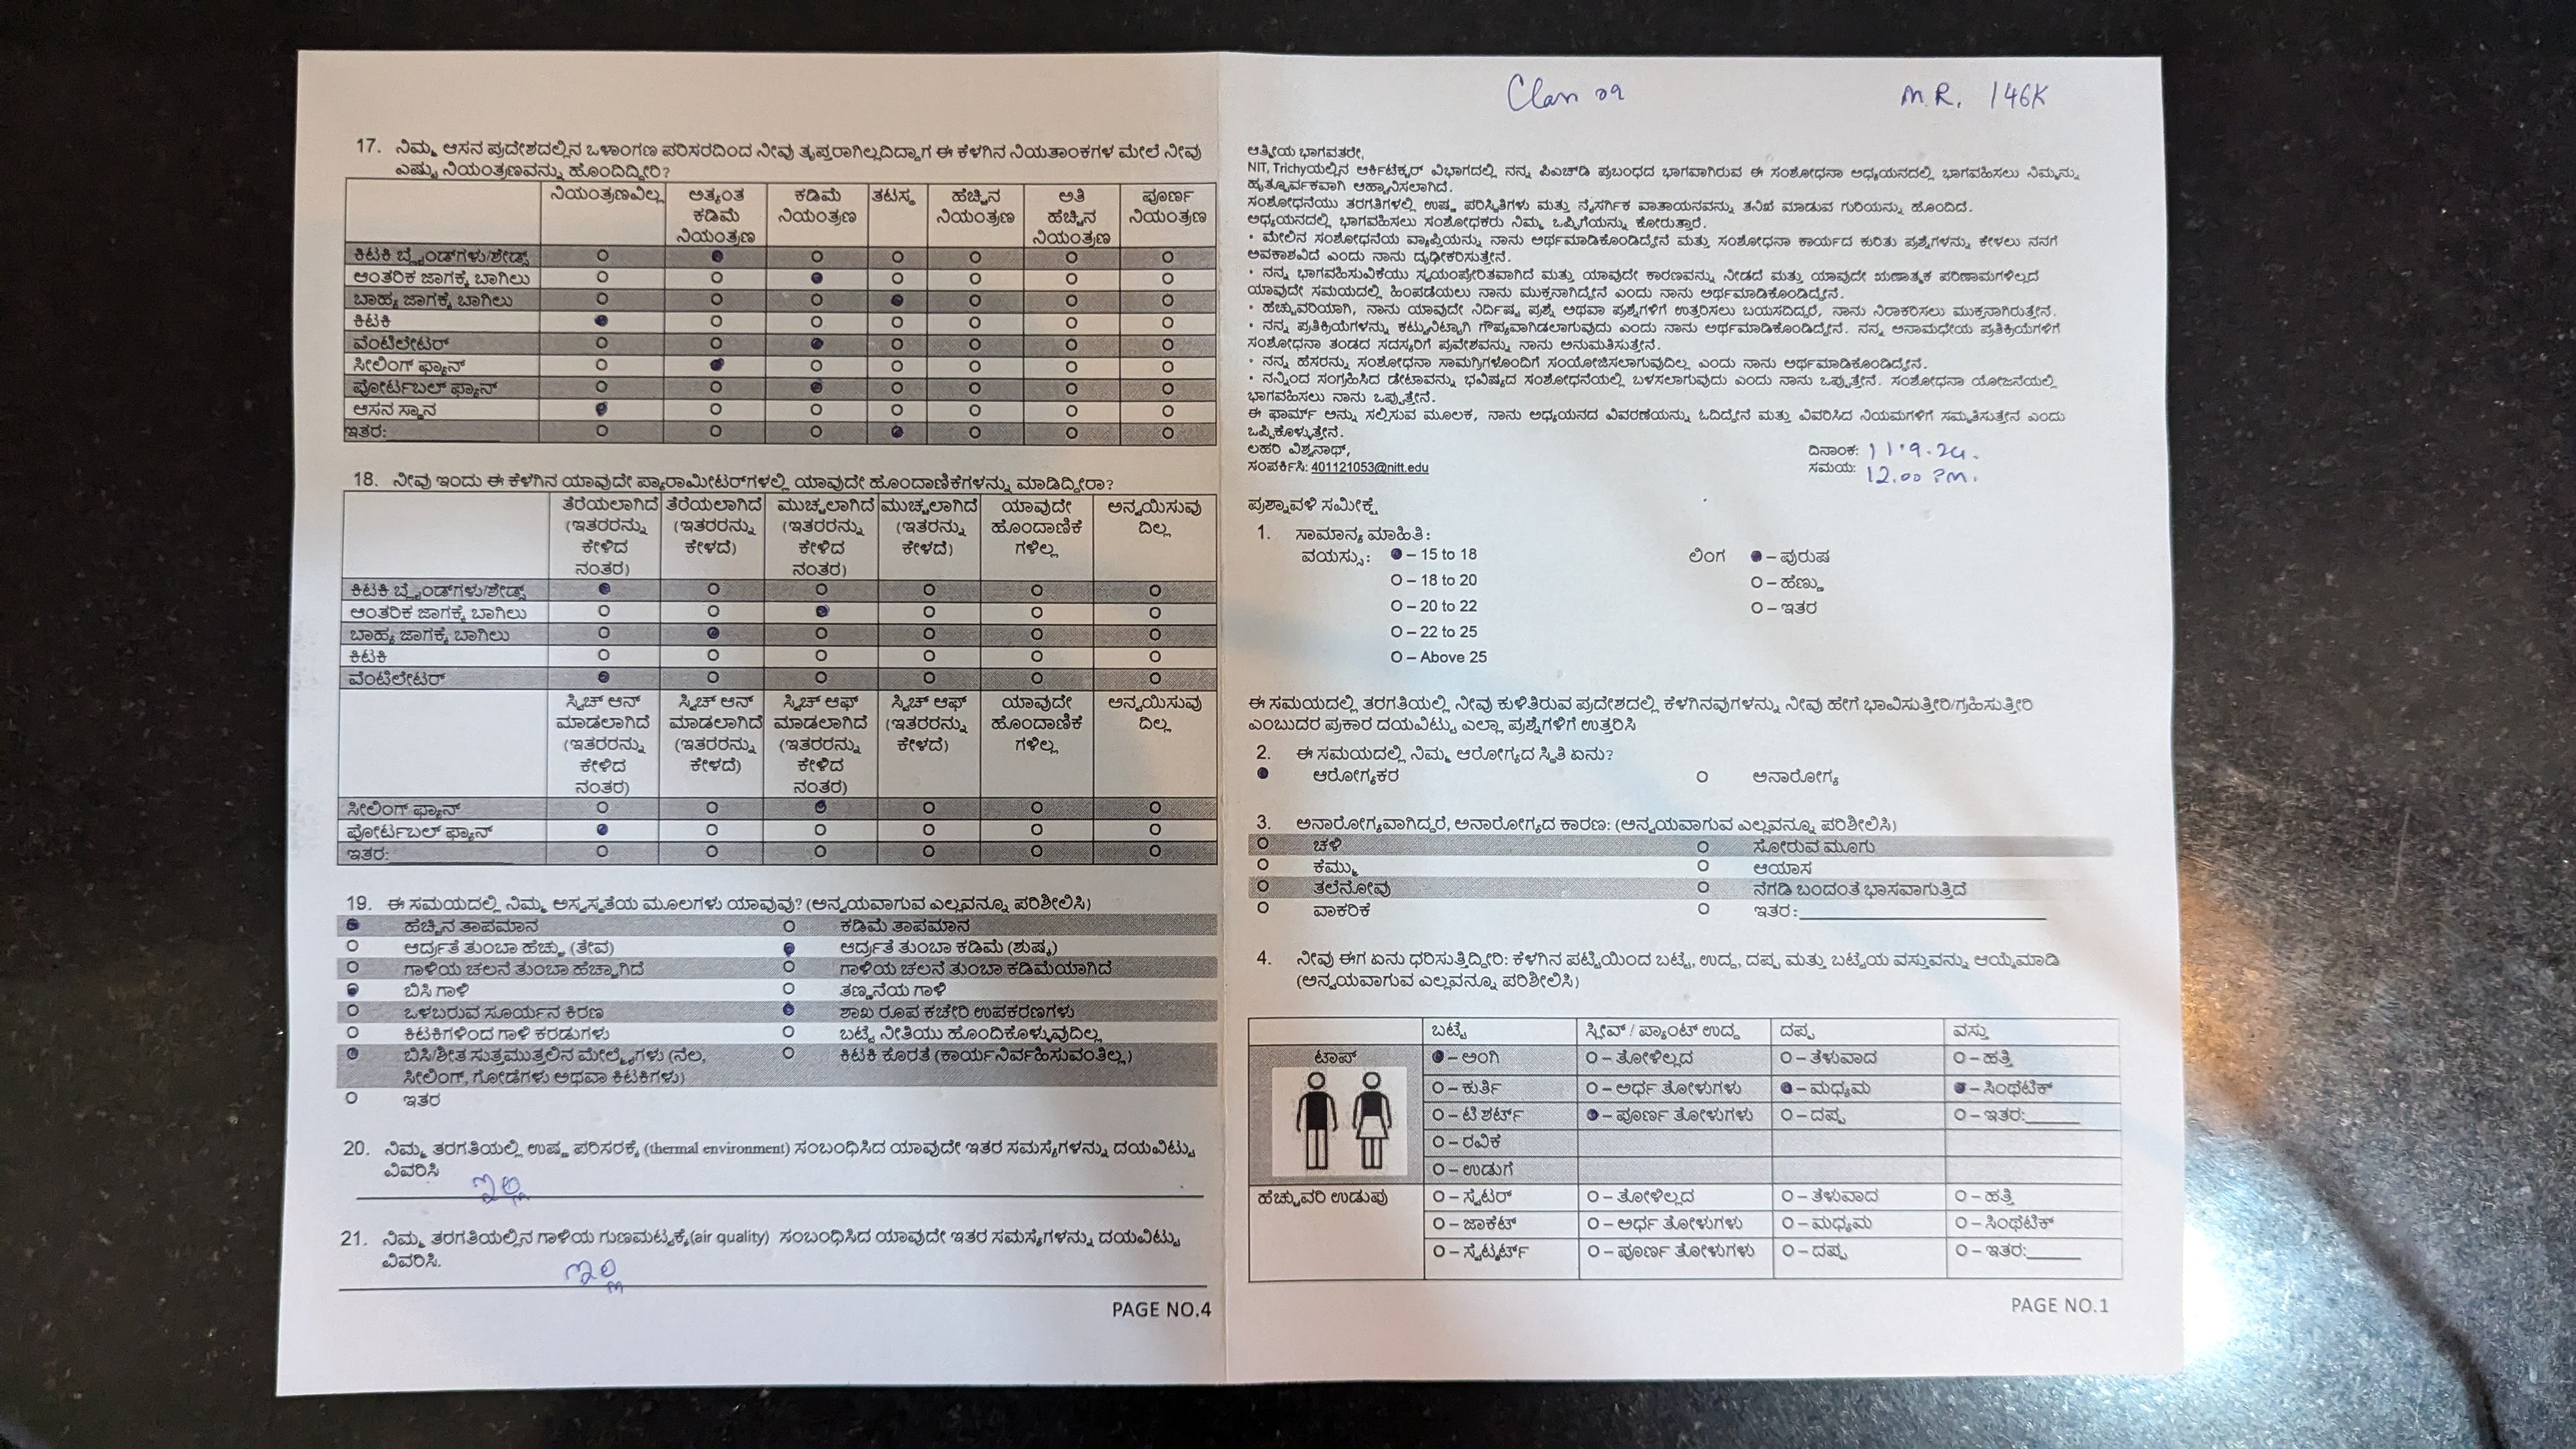 17. ನಿಮ್ಮ ಆಸನ ಪ್ರದೇಶದಲ್ಲಿನ ಒಳಾಂಗಣ ಪರಿಸರದಿಂದ ನೀವು ತೃಪ್ತರಾಗಿಲ್ಲದಿದ್ದಾಗ ಈ ಕೆಳಗಿನ ನಿಯತಾಂಕಗಳ ಮೇಲೆ ನೀವು
ಎಷ್ಟು ನಿಯಂತ್ರಣವನ್ನು ಹೊಂದಿದ್ದೀರಿ?
ನಿಯಂತ್ರಣವಿಲ್ಲ ಅತ್ಯಂತ ಕಡಿಮೆ ನಿಯಂತ್ರಣ ಕಡಿಮೆ ನಿಯಂತ್ರಣ ತಟಸ್ಥ ಹೆಚ್ಚಿನ ನಿಯಂತ್ರಣ ಅತಿ ಹೆಚ್ಚಿನ ನಿಯಂತ್ರಣ ಪೂರ್ಣ ನಿಯಂತ್ರಣ
ಕಿಟಕಿ ಬ್ಲೈಂಡ್‌ಗಳು/ಶೇಡ್ಸ್
ಆಂತರಿಕ ಜಾಗಕ್ಕೆ ಬಾಗಿಲು
ಬಾಹ್ಯ ಜಾಗಕ್ಕೆ ಬಾಗಿಲು
ಕಿಟಕಿ
ವೆಂಟಿಲೇಟರ್
ಸೀಲಿಂಗ್ ಫ್ಯಾನ್
ಪೋರ್ಟಬಲ್ ಫ್ಯಾನ್
ಆಸನ ಸ್ಥಾನ
ಇತರ:
18. ನೀವು ಇಂದು ಈ ಕೆಳಗಿನ ಯಾವುದೇ ಪ್ಯಾರಾಮೀಟರ್‌ಗಳಲ್ಲಿ ಯಾವುದೇ ಹೊಂದಾಣಿಕೆಗಳನ್ನು ಮಾಡಿದ್ದೀರಾ?
ತೆರೆಯಲಾಗಿದೆ (ಇತರರನ್ನು ಕೇಳಿದ ನಂತರ) ತೆರೆಯಲಾಗಿದೆ (ಇತರರನ್ನು ಕೇಳದೆ) ಮುಚ್ಚಲಾಗಿದೆ (ಇತರರನ್ನು ಕೇಳಿದ ನಂತರ) ಮುಚ್ಚಲಾಗಿದೆ (ಇತರರನ್ನು ಕೇಳದೆ) ಯಾವುದೇ ಹೊಂದಾಣಿಕೆ ಗಳಿಲ್ಲ ಅನ್ವಯಿಸುವು ದಿಲ್ಲ
ಕಿಟಕಿ ಬ್ಲೈಂಡ್‌ಗಳು/ಶೇಡ್ಸ್
ಆಂತರಿಕ ಜಾಗಕ್ಕೆ ಬಾಗಿಲು
ಬಾಹ್ಯ ಜಾಗಕ್ಕೆ ಬಾಗಿಲು
ಕಿಟಕಿ
ವೆಂಟಿಲೇಟರ್
ಸ್ವಿಚ್ ಆನ್ ಮಾಡಲಾಗಿದೆ (ಇತರರನ್ನು ಕೇಳಿದ ನಂತರ) ಸ್ವಿಚ್ ಆನ್ ಮಾಡಲಾಗಿದೆ (ಇತರರನ್ನು ಕೇಳದೆ) ಸ್ವಿಚ್ ಆಫ್ ಮಾಡಲಾಗಿದೆ (ಇತರರನ್ನು ಕೇಳಿದ ನಂತರ) ಸ್ವಿಚ್ ಆಫ್ (ಇತರರನ್ನು ಕೇಳದೆ) ಯಾವುದೇ ಹೊಂದಾಣಿಕೆ ಗಳಿಲ್ಲ ಅನ್ವಯಿಸುವು ದಿಲ್ಲ
ಸೀಲಿಂಗ್ ಫ್ಯಾನ್
ಪೋರ್ಟಬಲ್ ಫ್ಯಾನ್
ಇತರ:
19. ಈ ಸಮಯದಲ್ಲಿ ನಿಮ್ಮ ಅಸ್ವಸ್ಥತೆಯ ಮೂಲಗಳು ಯಾವುವು? (ಅನ್ವಯವಾಗುವ ಎಲ್ಲವನ್ನೂ ಪರಿಶೀಲಿಸಿ)
ಹೆಚ್ಚಿನ ತಾಪಮಾನ ಕಡಿಮೆ ತಾಪಮಾನ
ಆರ್ದ್ರತೆ ತುಂಬಾ ಹೆಚ್ಚು (ತೇವ) ಆರ್ದ್ರತೆ ತುಂಬಾ ಕಡಿಮೆ (ಶುಷ್ಕ)
ಗಾಳಿಯ ಚಲನೆ ತುಂಬಾ ಹೆಚ್ಚಾಗಿದೆ ಗಾಳಿಯ ಚಲನೆ ತುಂಬಾ ಕಡಿಮೆಯಾಗಿದೆ
ಬಿಸಿ ಗಾಳಿ ತಣ್ಣನೆಯ ಗಾಳಿ
ಒಳಬರುವ ಸೂರ್ಯನ ಕಿರಣ ಶಾಖ ರೂಪ ಕಚೇರಿ ಉಪಕರಣಗಳು
ಕಿಟಕಿಗಳಿಂದ ಗಾಳಿ ಕರಡುಗಳು ಬಟ್ಟೆ ನೀತಿಯು ಹೊಂದಿಕೊಳ್ಳುವುದಿಲ್ಲ
ಬಿಸಿ/ಶೀತ ಸುತ್ತಮುತ್ತಲಿನ ಮೇಲ್ಮೈಗಳು (ನೆಲ, ಕಿಟಕಿ ಕೊರತೆ (ಕಾರ್ಯನಿರ್ವಹಿಸುವಂತಿಲ್ಲ)
ಸೀಲಿಂಗ್, ಗೋಡೆಗಳು ಅಥವಾ ಕಿಟಕಿಗಳು)
ಇತರ
20. ನಿಮ್ಮ ತರಗತಿಯಲ್ಲಿ ಉಷ್ಣ ಪರಿಸರಕ್ಕೆ (thermal environment) ಸಂಬಂಧಿಸಿದ ಯಾವುದೇ ಇತರ ಸಮಸ್ಯೆಗಳನ್ನು ದಯವಿಟ್ಟು
ವಿವರಿಸಿ
ಇಲ್ಲ
21. ನಿಮ್ಮ ತರಗತಿಯಲ್ಲಿನ ಗಾಳಿಯ ಗುಣಮಟ್ಟಕ್ಕೆ(air quality) ಸಂಬಂಧಿಸಿದ ಯಾವುದೇ ಇತರ ಸಮಸ್ಯೆಗಳನ್ನು ದಯವಿಟ್ಟು
ವಿವರಿಸಿ.
ಇಲ್ಲ
PAGE NO.4
M.R. 146K
ಆತ್ಮೀಯ ಭಾಗವತರೇ,
NIT, Trichyಯಲ್ಲಿನ ಆರ್ಕಿಟೆಕ್ಚರ್ ವಿಭಾಗದಲ್ಲಿ ನನ್ನ ಪಿಎಚ್‌ಡಿ ಪ್ರಬಂಧದ ಭಾಗವಾಗಿರುವ ಈ ಸಂಶೋಧನಾ ಅಧ್ಯಯನದಲ್ಲಿ ಭಾಗವಹಿಸಲು ನಿಮ್ಮನ್ನು
ಹೃತ್ಪೂರ್ವಕವಾಗಿ ಆಹ್ವಾನಿಸಲಾಗಿದೆ.
ಸಂಶೋಧನೆಯು ತರಗತಿಗಳಲ್ಲಿ ಉಷ್ಣ ಪರಿಸ್ಥಿತಿಗಳು ಮತ್ತು ನೈಸರ್ಗಿಕ ವಾತಾಯನವನ್ನು ತನಿಖೆ ಮಾಡುವ ಗುರಿಯನ್ನು ಹೊಂದಿದೆ.
ಅಧ್ಯಯನದಲ್ಲಿ ಭಾಗವಹಿಸಲು ಸಂಶೋಧಕರು ನಿಮ್ಮ ಒಪ್ಪಿಗೆಯನ್ನು ಕೋರುತ್ತಾರೆ.
• ಮೇಲಿನ ಸಂಶೋಧನೆಯ ವ್ಯಾಪ್ತಿಯನ್ನು ನಾನು ಅರ್ಥಮಾಡಿಕೊಂಡಿದ್ದೇನೆ ಮತ್ತು ಸಂಶೋಧನಾ ಕಾರ್ಯದ ಕುರಿತು ಪ್ರಶ್ನೆಗಳನ್ನು ಕೇಳಲು ನನಗೆ
ಅವಕಾಶವಿದೆ ಎಂದು ನಾನು ದೃಢೀಕರಿಸುತ್ತೇನೆ.
• ನನ್ನ ಭಾಗವಹಿಸುವಿಕೆಯು ಸ್ವಯಂಪ್ರೇರಿತವಾಗಿದೆ ಮತ್ತು ಯಾವುದೇ ಕಾರಣವನ್ನು ನೀಡದೆ ಮತ್ತು ಯಾವುದೇ ಋಣಾತ್ಮಕ ಪರಿಣಾಮಗಳಿಲ್ಲದೆ
ಯಾವುದೇ ಸಮಯದಲ್ಲಿ ಹಿಂಪಡೆಯಲು ನಾನು ಮುಕ್ತನಾಗಿದ್ದೇನೆ ಎಂದು ನಾನು ಅರ್ಥಮಾಡಿಕೊಂಡಿದ್ದೇನೆ.
• ಹೆಚ್ಚುವರಿಯಾಗಿ, ನಾನು ಯಾವುದೇ ನಿರ್ದಿಷ್ಟ ಪ್ರಶ್ನೆ ಅಥವಾ ಪ್ರಶ್ನೆಗಳಿಗೆ ಉತ್ತರಿಸಲು ಬಯಸದಿದ್ದರೆ, ನಾನು ನಿರಾಕರಿಸಲು ಮುಕ್ತನಾಗಿರುತ್ತೇನೆ.
• ನನ್ನ ಪ್ರತಿಕ್ರಿಯೆಗಳನ್ನು ಕಟ್ಟುನಿಟ್ಟಾಗಿ ಗೌಪ್ಯವಾಗಿಡಲಾಗುವುದು ಎಂದು ನಾನು ಅರ್ಥಮಾಡಿಕೊಂಡಿದ್ದೇನೆ. ನನ್ನ ಅನಾಮಧೇಯ ಪ್ರತಿಕ್ರಿಯೆಗಳಿಗೆ
ಸಂಶೋಧನಾ ತಂಡದ ಸದಸ್ಯರಿಗೆ ಪ್ರವೇಶವನ್ನು ನಾನು ಅನುಮತಿಸುತ್ತೇನೆ.
• ನನ್ನ ಹೆಸರನ್ನು ಸಂಶೋಧನಾ ಸಾಮಗ್ರಿಗಳೊಂದಿಗೆ ಸಂಯೋಜಿಸಲಾಗುವುದಿಲ್ಲ ಎಂದು ನಾನು ಅರ್ಥಮಾಡಿಕೊಂಡಿದ್ದೇನೆ.
• ನನ್ನಿಂದ ಸಂಗ್ರಹಿಸಿದ ಡೇಟಾವನ್ನು ಭವಿಷ್ಯದ ಸಂಶೋಧನೆಯಲ್ಲಿ ಬಳಸಲಾಗುವುದು ಎಂದು ನಾನು ಒಪ್ಪುತ್ತೇನೆ. ಸಂಶೋಧನಾ ಯೋಜನೆಯಲ್ಲಿ
ಭಾಗವಹಿಸಲು ನಾನು ಒಪ್ಪುತ್ತೇನೆ.
ಈ ಫಾರ್ಮ್ ಅನ್ನು ಸಲ್ಲಿಸುವ ಮೂಲಕ, ನಾನು ಅಧ್ಯಯನದ ವಿವರಣೆಯನ್ನು ಓದಿದ್ದೇನೆ ಮತ್ತು ವಿವರಿಸಿದ ನಿಯಮಗಳಿಗೆ ಸಮ್ಮತಿಸುತ್ತೇನೆ ಎಂದು
ಒಪ್ಪಿಕೊಳ್ಳುತ್ತೇನೆ.
ಲಹರಿ ವಿಶ್ವನಾಥ್, ದಿನಾಂಕ: 11.9.24.
ಸಂಪರ್ಕಿಸಿ: 401121053@nitt.edu ಸಮಯ: 12.00 PM.
ಪ್ರಶ್ನಾವಳಿ ಸಮೀಕ್ಷೆ
1. ಸಾಮಾನ್ಯ ಮಾಹಿತಿ:
ವಯಸ್ಸು: – 15 to 18 ಲಿಂಗ – ಪುರುಷ
O – 18 to 20 O – ಹೆಣ್ಣು
O – 20 to 22 O – ಇತರ
O – 22 to 25
O – Above 25
ಈ ಸಮಯದಲ್ಲಿ ತರಗತಿಯಲ್ಲಿ ನೀವು ಕುಳಿತಿರುವ ಪ್ರದೇಶದಲ್ಲಿ ಕೆಳಗಿನವುಗಳನ್ನು ನೀವು ಹೇಗೆ ಭಾವಿಸುತ್ತೀರಿ/ಗ್ರಹಿಸುತ್ತೀರಿ
ಎಂಬುದರ ಪ್ರಕಾರ ದಯವಿಟ್ಟು ಎಲ್ಲಾ ಪ್ರಶ್ನೆಗಳಿಗೆ ಉತ್ತರಿಸಿ
2. ಈ ಸಮಯದಲ್ಲಿ ನಿಮ್ಮ ಆರೋಗ್ಯದ ಸ್ಥಿತಿ ಏನು?
ಆರೋಗ್ಯಕರ ಅನಾರೋಗ್ಯ
3. ಅನಾರೋಗ್ಯವಾಗಿದ್ದರೆ, ಅನಾರೋಗ್ಯದ ಕಾರಣ: (ಅನ್ವಯವಾಗುವ ಎಲ್ಲವನ್ನೂ ಪರಿಶೀಲಿಸಿ)
ಚಳಿ ಸೋರುವ ಮೂಗು
ಕೆಮ್ಮು ಆಯಾಸ
ತಲೆನೋವು ನೆಗಡಿ ಬಂದಂತೆ ಭಾಸವಾಗುತ್ತಿದೆ
ವಾಕರಿಕೆ ಇತರ:
4. ನೀವು ಈಗ ಏನು ಧರಿಸುತ್ತಿದ್ದೀರಿ: ಕೆಳಗಿನ ಪಟ್ಟಿಯಿಂದ ಬಟ್ಟೆ, ಉದ್ದ, ದಪ್ಪ ಮತ್ತು ಬಟ್ಟೆಯ ವಸ್ತುವನ್ನು ಆಯ್ಕೆಮಾಡಿ
(ಅನ್ವಯವಾಗುವ ಎಲ್ಲವನ್ನೂ ಪರಿಶೀಲಿಸಿ)
ಬಟ್ಟೆ ಸ್ಲೀವ್ / ಪ್ಯಾಂಟ್ ಉದ್ದ ದಪ್ಪ ವಸ್ತು
ಟಾಪ್ – ಅಂಗಿ O – ತೋಳಿಲ್ಲದ O – ತೆಳುವಾದ O – ಹತ್ತಿ
O – ಕುರ್ತಿ O – ಅರ್ಧ ತೋಳುಗಳು – ಮಧ್ಯಮ – ಸಿಂಥೆಟಿಕ್
O – ಟಿ ಶರ್ಟ್ – ಪೂರ್ಣ ತೋಳುಗಳು O – ದಪ್ಪ O – ಇತರ:
O – ರವಿಕೆ
O – ಉಡುಗೆ
ಹೆಚ್ಚುವರಿ ಉಡುಪು O – ಸ್ವೆಟರ್ O – ತೋಳಿಲ್ಲದ O – ತೆಳುವಾದ O – ಹತ್ತಿ
O – ಜಾಕೆಟ್ O – ಅರ್ಧ ತೋಳುಗಳು O – ಮಧ್ಯಮ O – ಸಿಂಥೆಟಿಕ್
O – ಸ್ವೆಟ್ಶರ್ಟ್ O – ಪೂರ್ಣ ತೋಳುಗಳು O – ದಪ್ಪ O – ಇತರ:
PAGE NO.1